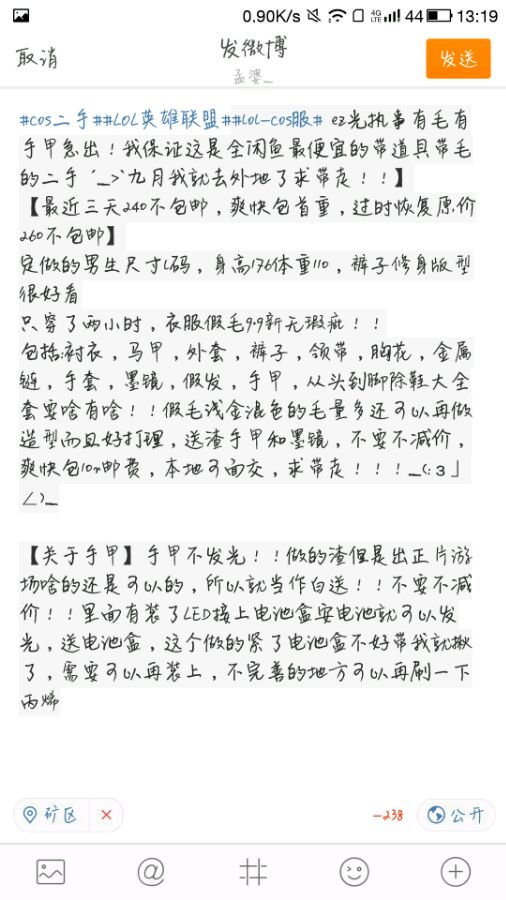 0.90K/s 4G LTE 44 13:19
取消 发微博 发送
孟婆_
#cos二手##LOL英雄联盟##lol-cos服# ez光执事有毛有
手甲急出！我保证这是全闲鱼最便宜的带道具带毛
的二手´_>`九月我就去外地了求带走！！】
【最近三天240不包邮，爽快包首重，过时恢复原价
260不包邮】
定做的男生尺寸L码，身高176体重110，裤子修身版型
很好看
只穿了两小时，衣服假毛9.9新无瑕疵！！
包括:衬衣，马甲，外套，裤子，领带，胸花，金属
链，手套，墨镜，假发，手甲，从头到脚除鞋大全
套要啥有啥！！假毛浅金混色的毛量多还可以再做
造型而且好打理，送渣手甲和墨镜，不要不减价，
爽快包10r邮费，本地可面交，求带走！！！_(:3」
∠)_
【关于手甲】手甲不发光！！做的渣但是出正片游
场啥的还是可以的，所以就当作白送！！不要不减
价！！里面有装了LED接上电池盒安电池就可以发
光，送电池盒，这个做的紧了电池盒不好带我就揪
了，需要可以再装上，不完善的地方可以再刷一下
丙烯
矿区 × -238 公开